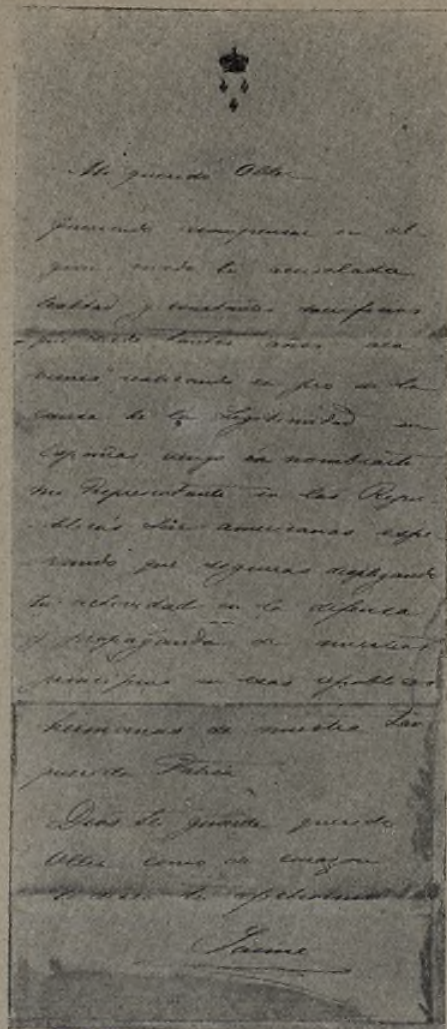 Mi querido Oller
Queriendo recompensar en al
gun modo la acrisolada
lealtad y constantes sacrificios
que desde tantos años acá
vienes realizando en pro de la
causa de la Legitimidad en
España vengo en nombrarte
mi Representante en las Repu
blicas Sur americanas espe
rando que seguiras desplegando
tu actividad en la defensa
y propaganda de nuestros
principios en esas republicas
hermanas de nuestra tan
querida Patria
Dios te guarde querido
Oller como de corazon
te desea tu afectisimo
Jaime